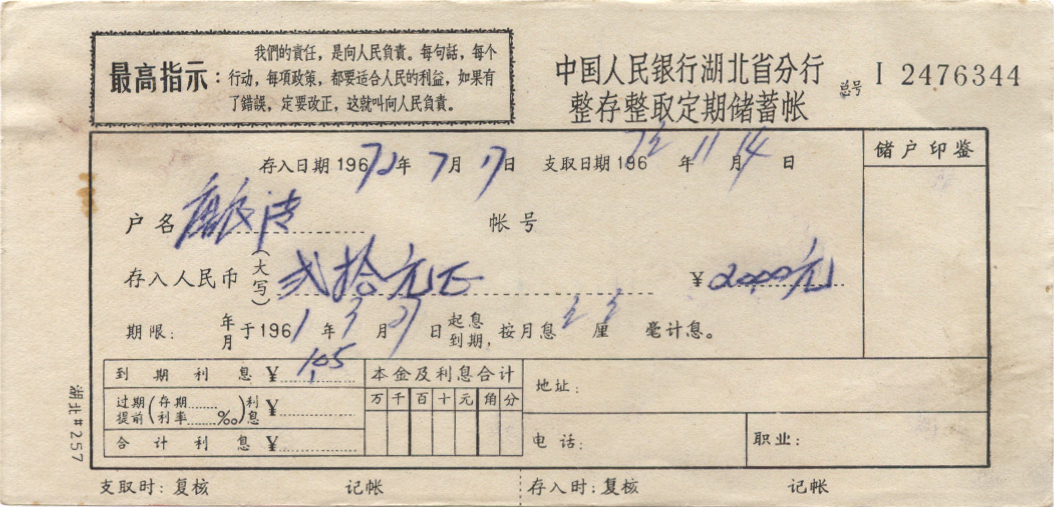 最高指示：
我們的責任，是向人民負責。每句話，每个
行动，每項政策，都要适合人民的利益，如果有
了錯誤，定要改正，这就叫向人民負責。
中国人民银行湖北省分行
整存整取定期储蓄帐
总号 I 2476344
存入日期196 72年 7月 17日 支取日期196 72年 11月 14日
储户印鉴
户名
帐号
存入人民币（大写）贰拾元正 ¥ 2000元
期限： 年 月 于196 年 月 日 起息 到期，按月息 厘 毫计息。
到期利息 ¥ 1.05
本金及利息合计
万 千 百 十 元 角 分
过期 提前（存期 利率 ‰）利息 ¥
合计利息 ¥
地址：
电话：
职业：
湖北#257
支取时：复核 记帐
存入时：复核 记帐